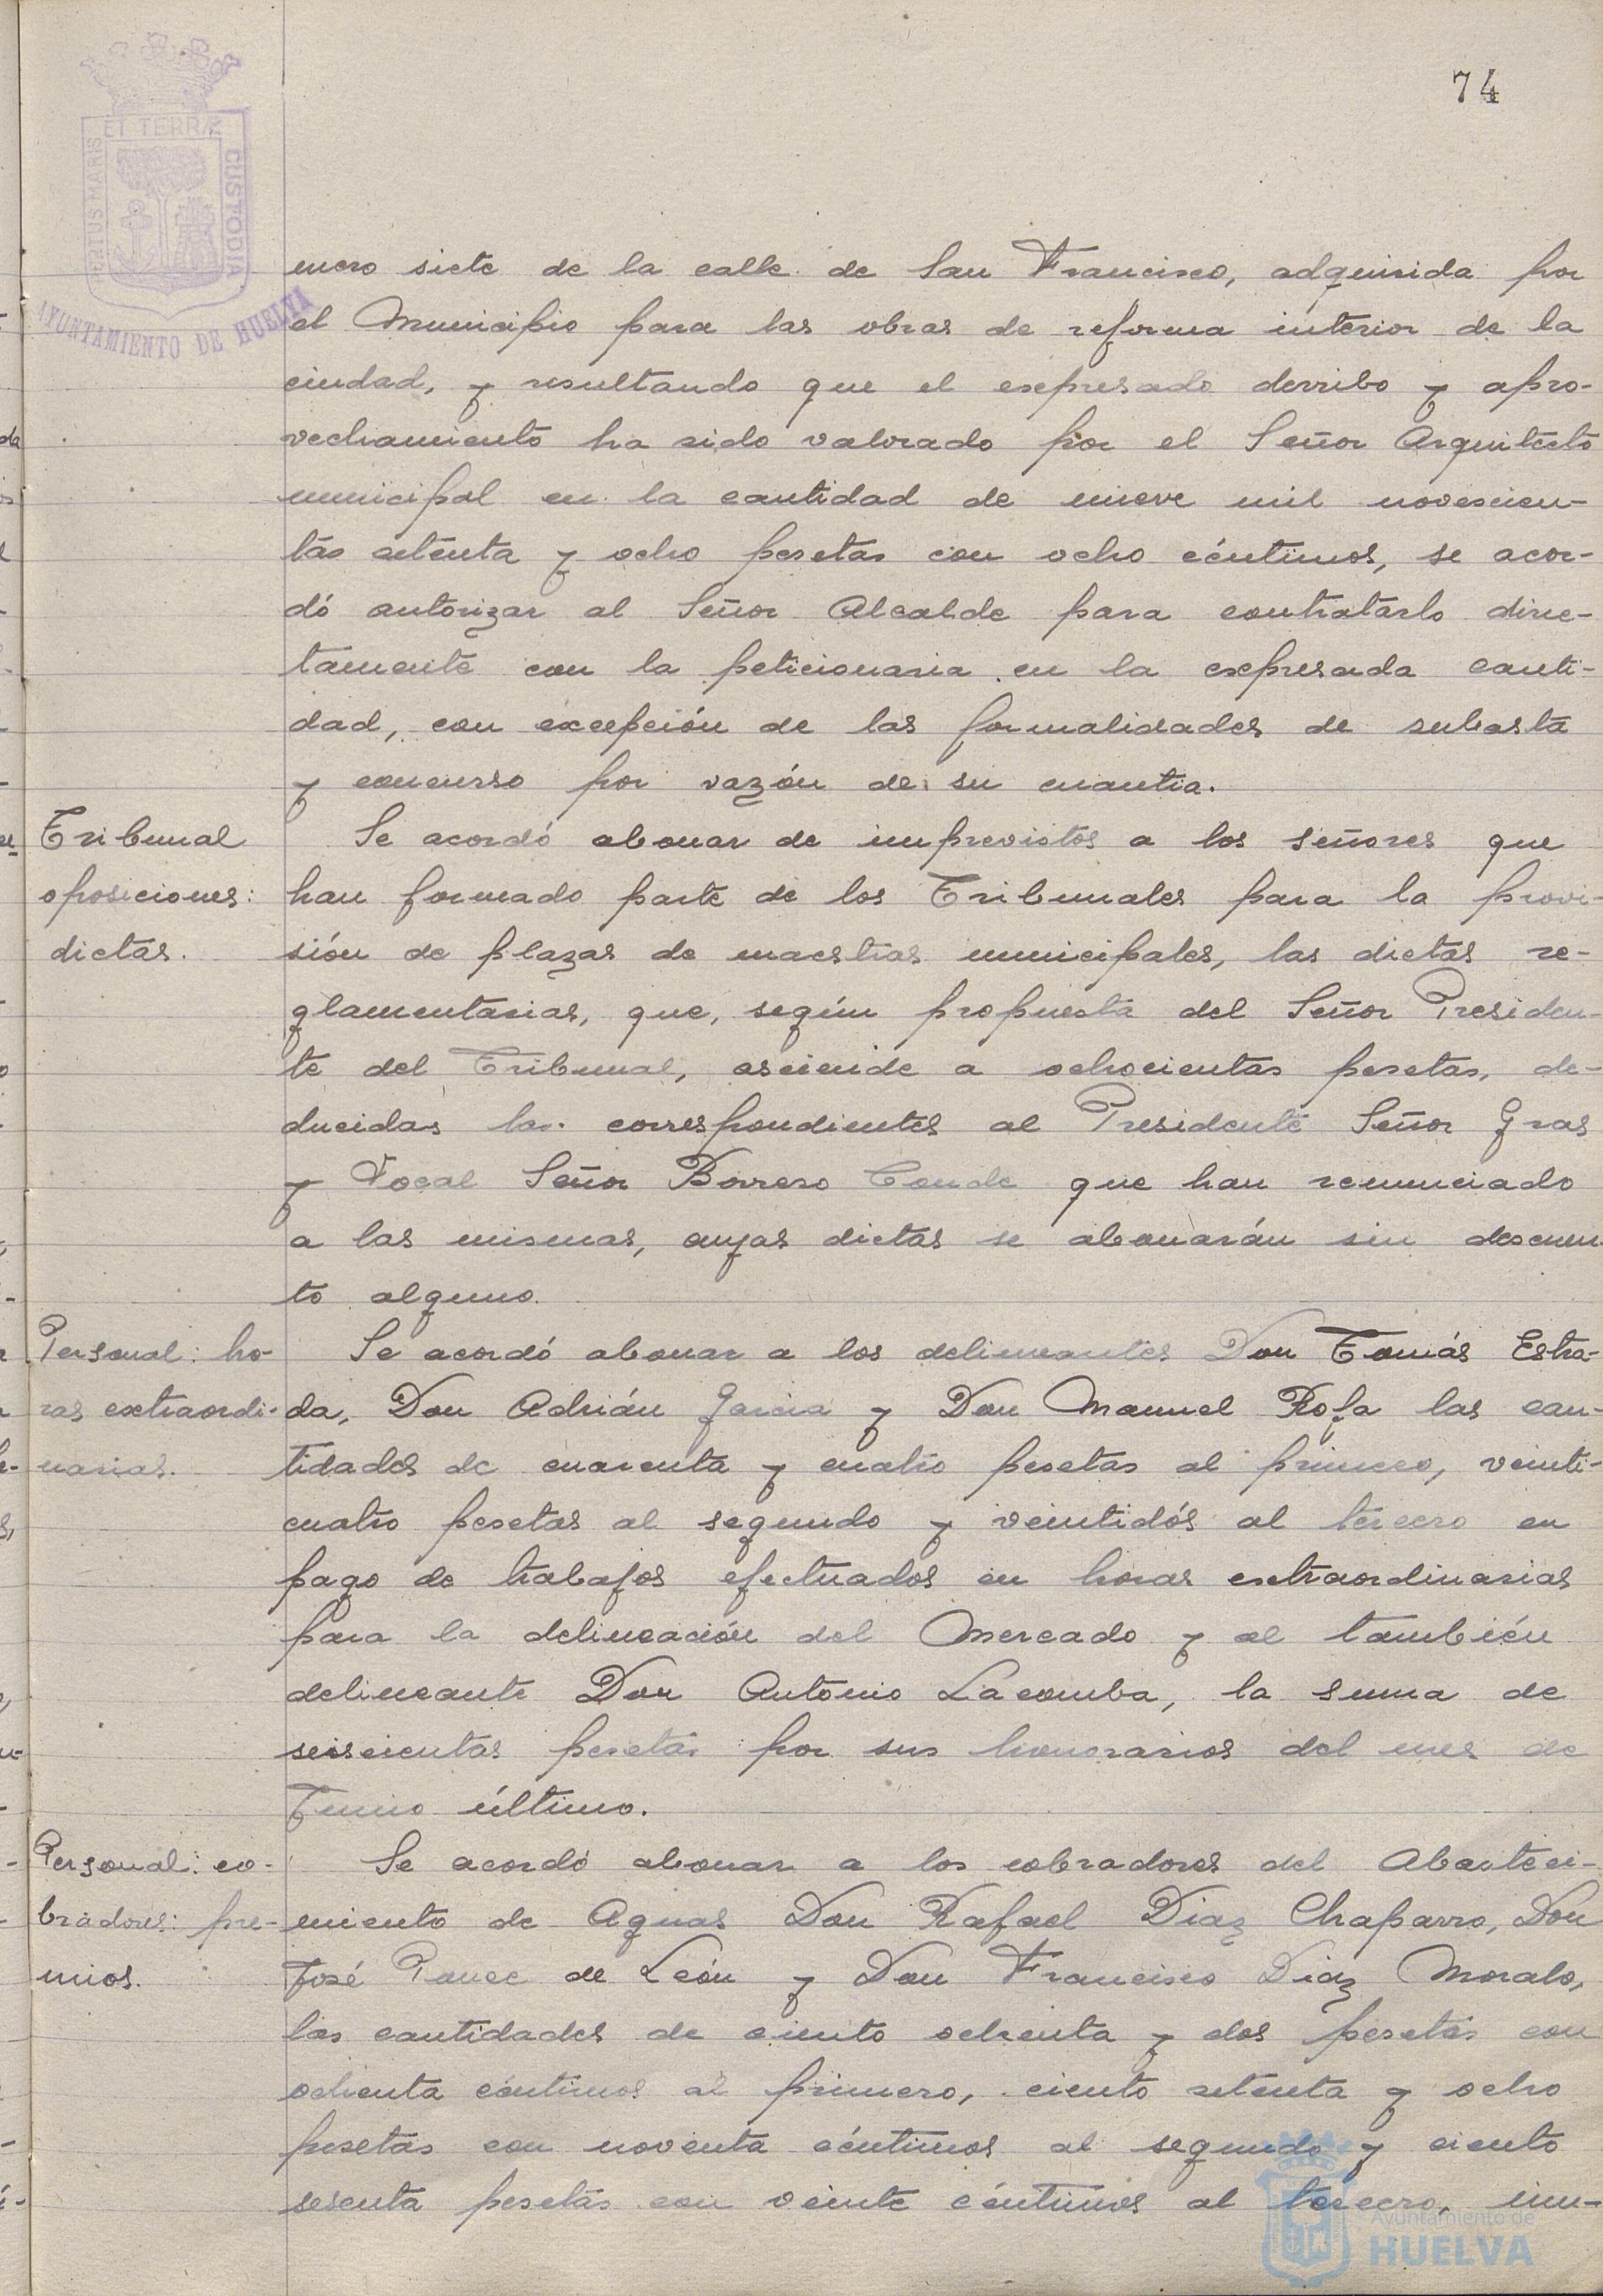 74
PORTUS MARIS
ET TERRÆ
CUSTODIA
AYUNTAMIENTO DE HUELVA
mero siete de la calle de San Francisco, adquirida por
el Municipio para las obras de reforma interior de la
ciudad, y resultando que el expresado derribo y apro-
vechamiento ha sido valorado por el Señor Arquitecto
municipal en la cantidad de nueve mil novecien-
tas setenta y ocho pesetas con ocho céntimos, se acor-
dó autorizar al Señor Alcalde para contratarlo direc-
tamente con la peticionaria en la expresada canti-
dad, con excepción de las formalidades de subasta
y concurso por razón de su cuantia.
Tribunal
oposiciones:
dietas.
Se acordó abonar de imprevistos a los señores que
han formado parte de los Tribunales para la provi-
sión de plazas de maestras municipales, las dietas re-
glamentarias, que, según propuesta del Señor Presiden-
te del Tribunal, asciende a ochocientas pesetas, de-
ducidas las correspondientes al Presidente Señor Gras
y Vocal Señor Borrero Conde que han renunciado
a las mismas, cuyas dietas se abonarán sin descuen
to alguno.
Personal: ho-
ras extraordi-
narias.
Se acordó abonar a los delineantes Don Tomás Estra-
da, Don Adrián Garcia y Don Manuel Rofa las can-
tidades de cuarenta y cuatro pesetas al primero, veinti-
cuatro pesetas al segundo y veintidós al tercero en
pago de trabajos efectuados en horas extraordinarias
para la delineación del Mercado y al también
delineante Don Antonio Lacomba, la suma de
seiscientas pesetas por sus honorarios del mes de
Junio último.
Personal: co-
bradores: pre-
mios.
Se acordó abonar a los cobradores del Abasteci-
miento de Aguas Don Rafael Diaz Chaparro, Don
José Ponce de León y Don Francisco Diaz Moralo,
las cantidades de ciento ochenta y dos pesetas con
ochenta céntimos al primero, ciento setenta y ocho
pesetas con noventa céntimos al segundo y ciento
sesenta pesetas con veinte céntimos al tercero, im-
Ayuntamiento de
HUELVA